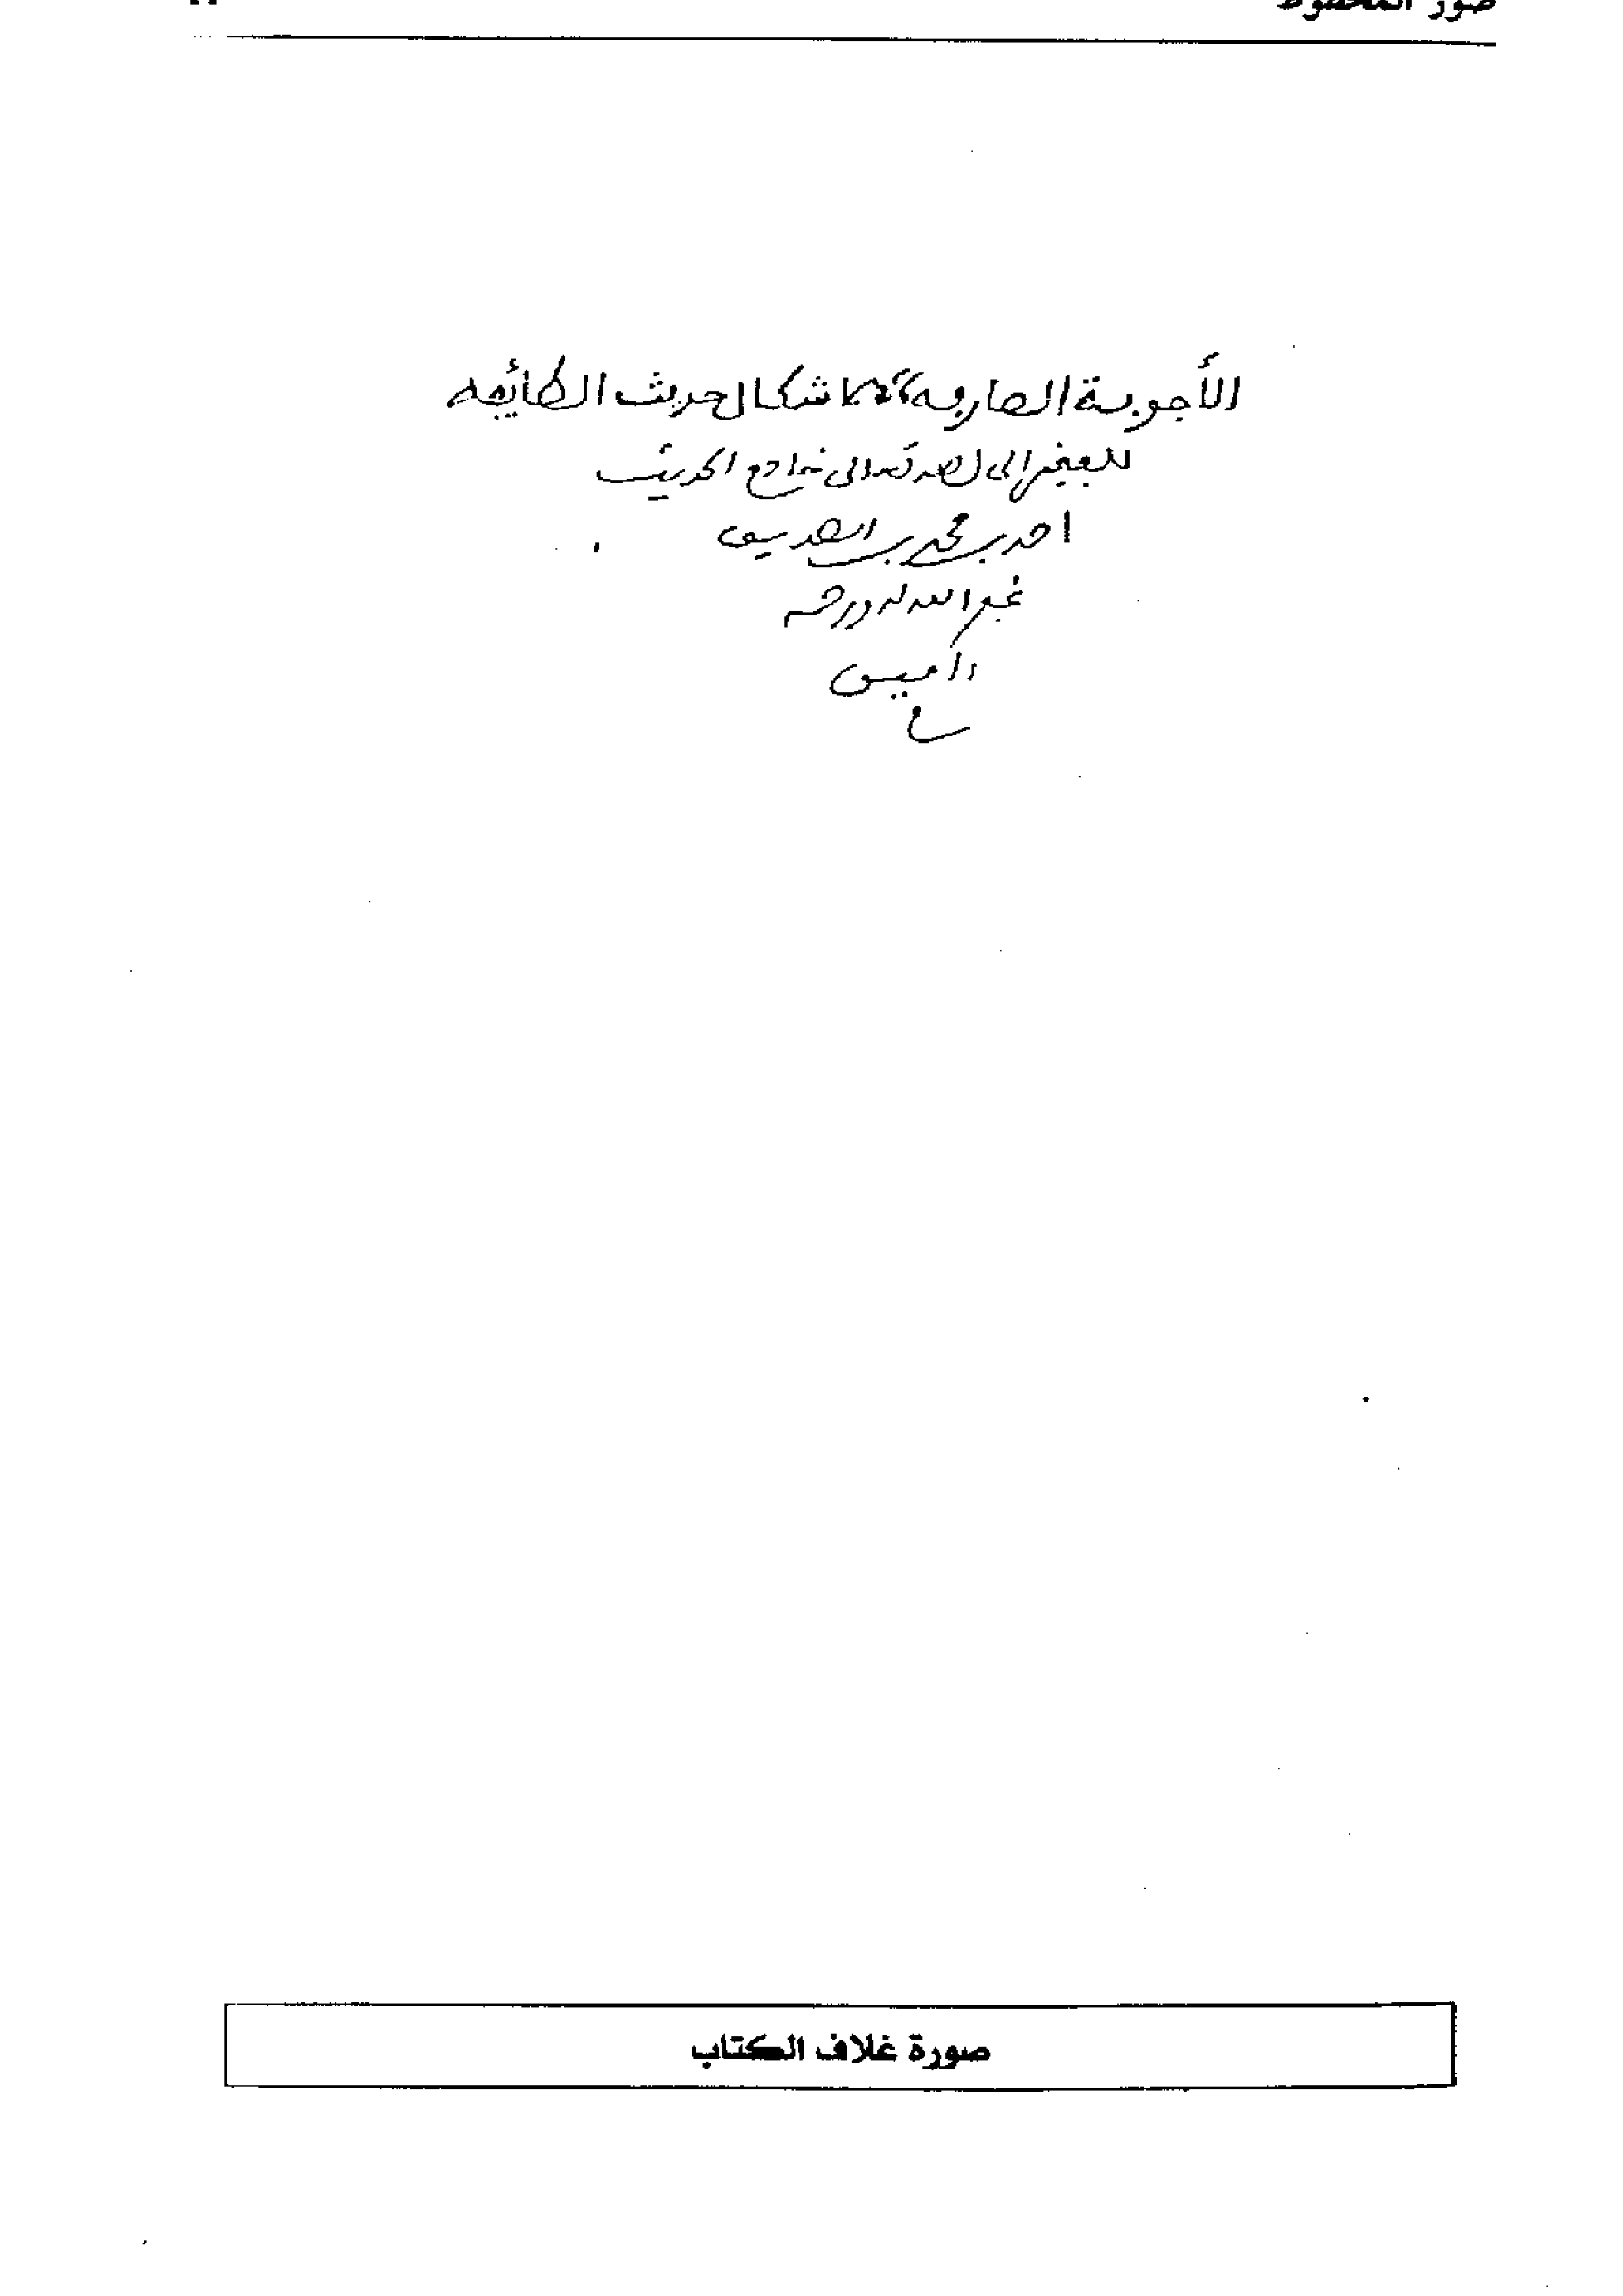 صور المخطوط
الأجوبة الصارفة لإشكال حديث الطائفة
للفقير إلى الله تعالى خادم الحديث
احمد بن محمد بن الصديق
غفر الله له ورحمه
ءامين
صورة غلاف الكتاب